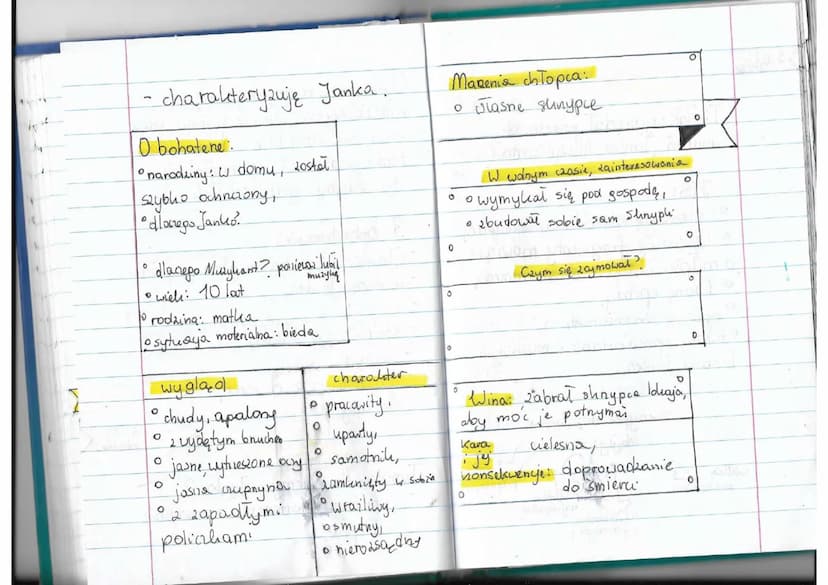 - charakteryzuję Janka.
O bohaterze:
narodziny: w domu, został
szybko ochrzczony,
dlaczego Janko?
dlaczego Muzykant? ponieważ lubił
muzykę
wiek: 10 lat
rodzina: matka
sytuacja materialna: bieda
wygląd
chudy, opalony
z wydętym brzuchem
jasne, wytrzeszczone oczy
jasna czupryna
z zapadłymi
policzkami
charakter
pracowity,
uparty,
samotnik,
zamknięty w sobie
wrażliwy,
smutny,
nierozsądny
Marzenia chłopca:
własne skrzypce
W wolnym czasie, zainteresowania
wymykał się pod gospodę,
zbudował sobie sam skrzypki
Czym się zajmował?
Wina: zabrał skrzypce lokaja,
aby móc je potrzymać
Kara cielesna,
i jej
konsekwencje: doprowadzenie
do śmierci